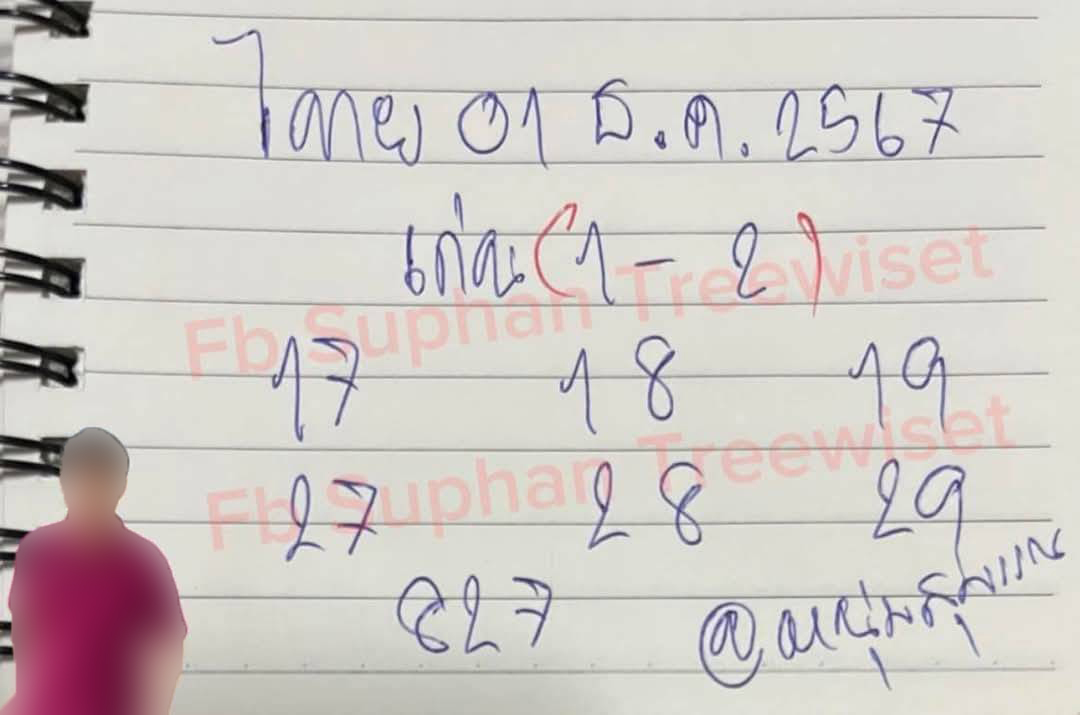 ไทย 01 ธ.ค. 2567
เก่น (1 - 2)
Fb Suphan Treewiset
17 18 19
Fb Suphan Treewiset
27 28 29
827
@หนุ่มสุพรรณ